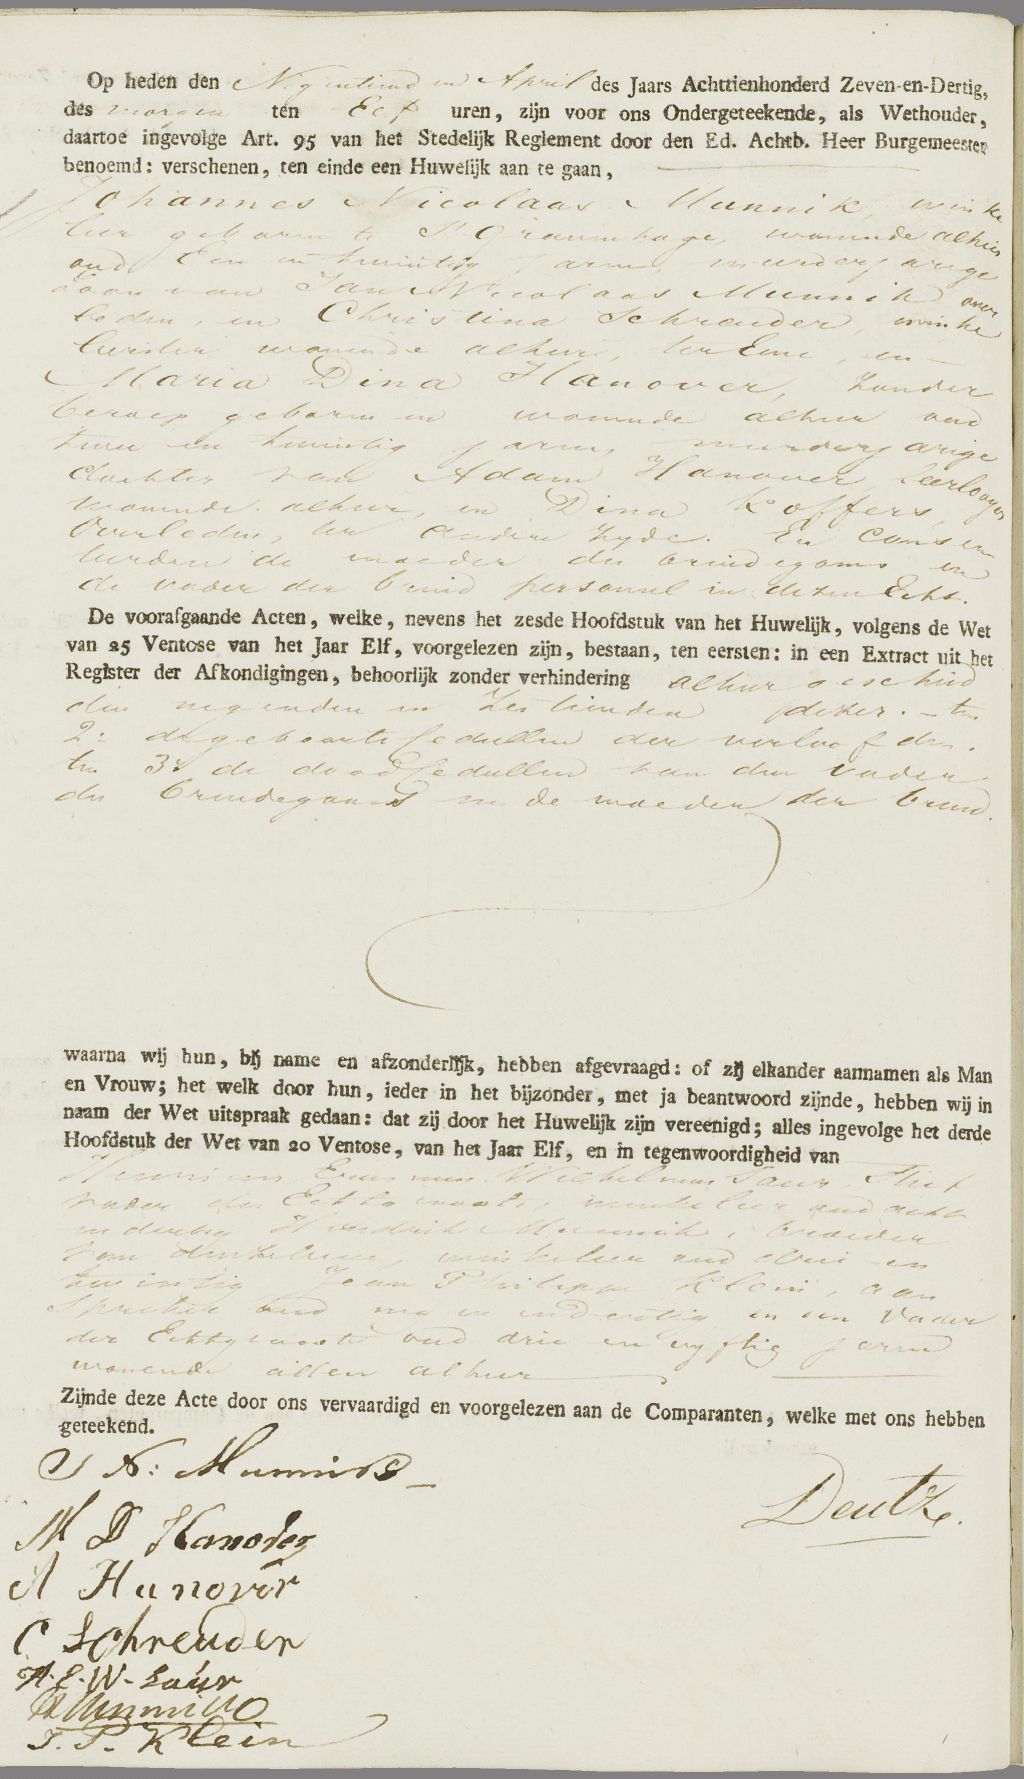 Op heden den Negentiend en April des Jaars Achttienhonderd Zeven-en-Dertig,
des morgen ten Eef uren, zijn voor ons Ondergeteekende, als Wethouder,
daartoe ingevolge Art. 95 van het Stedelijk Reglement door den Ed. Achtb. Heer Burgemeester
benoemd: verschenen, ten einde een Huwelijk aan te gaan,
Johannes Nicolaas Munnik, winke
lier geboren te 's Gravenhage, wonende alhier
oud Een en twintig jaren, minderjarige
zoon van Jan Nicolaas Munnik over
leden, en Christina Schreuder, winke
lierster wonende alhier, ter Eene, en
Maria Dina Hanover, zonder
beroep geboren en wonende alhier oud
twee en twintig jaren, minderjarige
dochter van Adam Hanover, leerlooyer
wonende alhier, en Dina Koffers,
Overleden, ter andere zyde. En Consen
teerden de moeder des bruidegoms en
de vader der bruid personeel in dezen Echt.
De voorafgaande Acten, welke, nevens het zesde Hoofdstuk van het Huwelijk, volgens de Wet
van 25 Ventose van het Jaar Elf, voorgelezen zijn, bestaan, ten eersten: in een Extract uit het
Register der Afkondigingen, behoorlijk zonder verhindering alhier geschied
den negenden en Zestienden dezer. - ten
2: de geboorte Cedullen der verloofden.
ten 3: de dood Cedullen van den vader
des bruidegoms en de moeder der bruid.
waarna wij hun, bij name en afzonderlijk, hebben afgevraagd: of zij elkander aannamen als Man
en Vrouw; het welk door hun, ieder in het bijzonder, met ja beantwoord zijnde, hebben wij in
naam der Wet uitspraak gedaan: dat zij door het Huwelijk zijn vereenigd; alles ingevolge het derde
Hoofdstuk der Wet van 20 Ventose, van het Jaar Elf, en in tegenwoordigheid van
Wilhelmus Saur, Stief
vader des Echtgenoots, winkelier oud acht
en dertig Hendrik Munnik, broeder
van denzelven, winkelier oud drie en
twintig Jean Philippe Klein, aan
spreker oud en dertig en een Vader
der Echtgenoote oud drie en vyftig jaren
wonende allen alhier
Zijnde deze Acte door ons vervaardigd en voorgelezen aan de Comparanten, welke met ons hebben
geteekend.
J N: Munnik
Deutz.
M D Hanover
A Hanover
C Schreuder
H. E. W. Saur
H Munnik
J. P. Klein